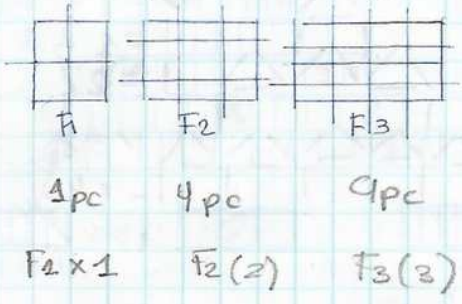 F1 F2 F3
1pc 4pc 9pc
F1 x 1 F2(2) F3(3)